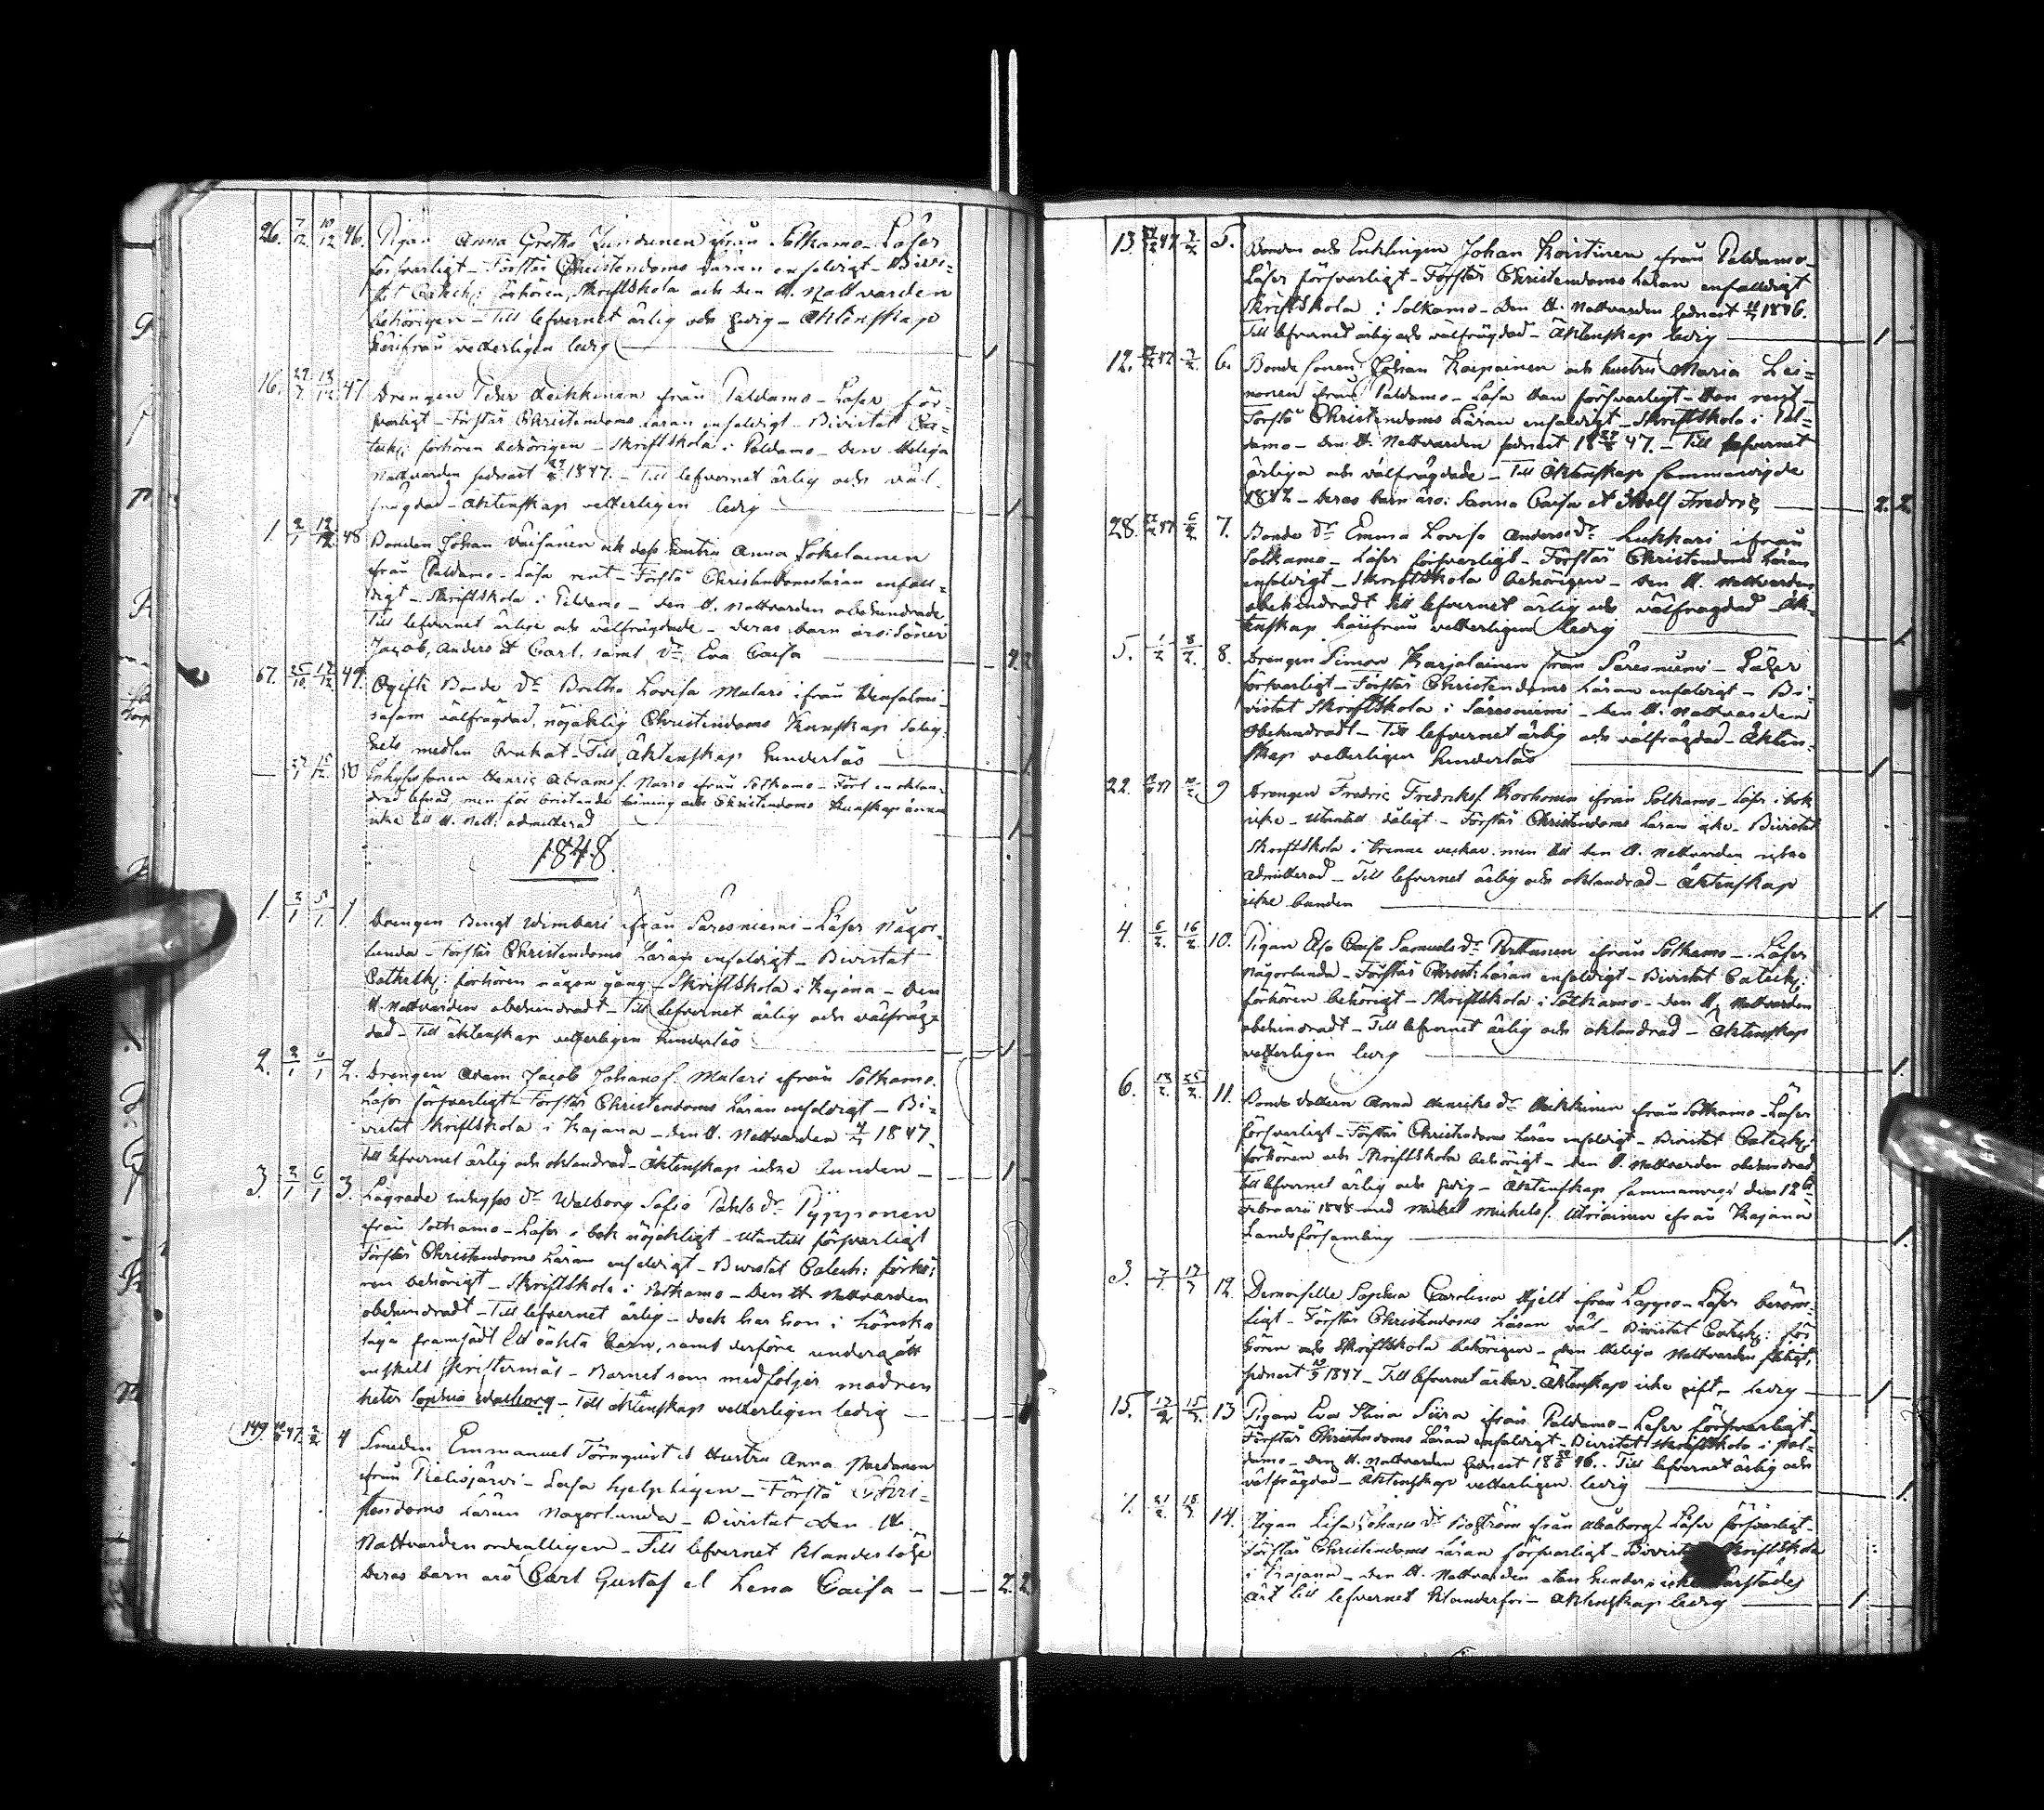 26. 7/12 10/12 46. Pigan Anna Gretha ifrån Sotkamo - Läser
försvarligt - Förstår Christendoms Läran enfaldigt - Bivi=
stat Catech: förhören, Skriftskola och den H. Nattvarden
behörigen - Till lefvernet ärlig och - Äktenskap
härifrån vetterligen ledig 1
16. 47. Drengen Peter Heikkinen ifrån Paldamo - Läser för=
svarligt - Förstår Christendoms Läran enfaldigt - Bivistat Ca=
tech: förhören behörigen - Skriftskola i Paldamo - Den Heliga
Nattvarden sednast 1847. - Till lefvernet ärlig och väl=
frägdad - Äktenskap vetterligen ledig 1
1. 2/1 48 Bonden Johan Väisänen och dess hustru Anna Jokelainen
ifrån Paldamo - Läsa rent - Förstå Christendomsläran enfall=
digt - Skriftskola i Paldamo - Den H. Nattvarden obehindrade
Till lefvernet ärliga och välfrägdade - Deras barn äro: Söner
Jacob, Anders et Carl, samt Dr Eva Caisa 4. 2
67. 25/10 17/12 49. Ogifta Bonde Dr Bretha Lovisa Malari ifrån Idensalmi -
såsom välfrägdad, nöjaktig Christendoms Kunskap Salig=
hets medlen brukat - Till Äktenskap hinderlös 1
50 Inhysessonen Henric Abramss. Mario ifrån Sotkamo - Fört en oklan=
drad lefnad, men för bristande läsning och Christendoms Kunskap ännu
icke till H. Nattv. admitterad 1
1848.
1. 3/1 5/1 1. Drengen Bengt Wimbari ifrån Säresniemi - Läser någor=
lunda - Förstår Christendoms Läran enfaldigt - Bivistat
Cathekh: förhören någon gång - Skriftskola i Kajana - Den
H. Nattvarden obehindradt - Till lefvernet ärlig och välfräg=
dad - Till äktenskap vetterligen hinderlös 1
2. 3/1 6/1 2. Drengen Adam Jacob Johanss. Malari ifrån Sotkamo.
Läser försvarligt - Förstår Christendoms Läran enfaldigt - Bi=
vistat Skriftskola i Kajana - Den H. Nattvarden 1847.
Till lefvernet ärlig och oklandrad - Äktenskap icke bunden - 1
3. 3/1 6/1 3. Lägrade inhyses Dr Walborg Sofia Påhls Dr Pyypponen
ifrån Sotkamo - Läser i bok nöjaktigt - Utantill försvarligt
Förstår Christendoms Läran enfaldigt - Bivistat Catech: förhö=
ren behörigt - Skriftskola i Sotkamo - Den H. Nattvarden
obehindradt - Till lefvernet ärlig - dock har hon i lönska
läge framfödt ett oäkta barn, samt derföre undergått
enskelt skriftermål - Barnet som medföljer modren
heter Sophia Walborg - Till äktenskap vetterligen ledig
149. 47. 4 Smeden Emmanuel Törnquist et Hustru Anna Nardanen
ifrån Pielisjärvi - Läsa hjelpligen - Förstå Chri=
stendoms Läran någorlunda - Bivistat den H.
Nattvarden ordentligen - Till lefvernet klanderlöse
Deras barn äro Carl Gustaf et Lena Caisa - 2. 2
13. 47. 5. Bonden och Enklingen Johan Koistinen ifrån Paldamo -
Läser försvarligt - Förstår Christendoms Läran enfalldigt
Skriftskola i Sotkamo - Den H. Nattvarden sednast 1846.
Till lefvernet ärlig och välfrägdad - Äktenskap ledig 1
12. 47 6. Bonde sonen Johan Karpainen och hustru Maria Lei=
nonen ifrån Paldamo - Läsa Han försvarligt - Hon rent -
Förstå Christendoms Läran enfaldigt - Skriftskola i Pal=
damo - Den H. Nattvarden sednast 18 47. - Till lefvernet
ärliga och välfrägdade - Till Äktenskap sammanvigde
1842 - deras barn äro: Sanna Caisa et Adolf Fredric 2. 2
28. 47 7. Bonde Dr Emma Lovisa Anders Dr Lukkari ifrån
Sotkamo - Läser försvarligt - Förstår Christendoms Läran
enfaldigt - Skriftskola behörigen - den H. Nattvarden
obehindradt Till lefvernet ärlig och välfrägdad - Äk=
tenskap härifrån vetterligen ledig 1
5. 1/2 8/2 8. Drengen Simon Karjalainen från Säresniemi - Läser
försvarligt - Förstår Christendoms Läran enfaldigt - Bi=
vistat Skriftskola i Säresniemi - den H. Nattvarden
Obehindradt - Till lefvernet ärlig och välfrägdad - Äkten=
skap vetterligen hinderlös 1
22. 47 9 Drengen Fredric Fredrikss. Korhonen ifrån Sotkamo - Läser i bok
icke - Utantill dåligt - Förstår Christendoms Läran icke - Bivistat
Skriftskola i trenne veckor men till den H. Nattvarden icke
admitterad - Till lefvernet ärlig och oklandrad - Äktenskap
icke bunden 1
4. 6/2 16/2 10. Pigan Caisa Samuels Dr ifrån Sotkamo - Läser
Någorlunda - Förstår Christ: Läran enfaldigt - Bivistat Catech:
förhören behörigt - Skriftskola i Sotkamo - Den H. Nattvarden
obehindradt - Till lefvernet ärlig och oklandrad - Äktenskap
vetterligen ledig 1.
6. 13/2 25/2 11. Bonde dottern Anna Henriks Dr Heikkinen från Sotkamo - Läser
försvarligt - Förstår Christendoms Läran enfaldigt - Bivistat Catech:
förhören och Skriftskola behörigt - Den H. Nattvarden obehindrad
Till lefvernet ärlig och - Äktenskap sammanvigd den 12
Februarii 1848 med Mickel Mickelss. Utriainen ifrån Kajana
Landsförsamling 1.
3. 12. Demoiselle Sophia Carolina Hjelt ifrån Lappo - Läser beröm=
ligt - Förstår Christendoms Läran väl - Bivistat Catech: för
hören och Skriftskola behörigen - Den Heliga Nattvarden flitigt,
sednast 1847 - Till lefvernet ärbar. Äktenskap icke gift - ledig 1
15. 13 Pigan Eva Stina Siira ifrån Paldamo - Läser försvarligt -
Förstår Christendoms Läran enfaldigt - Bivistat Skriftskola i Pal=
damo - Den H. Nattvarden sednast 18 46. - Till lefvernet ärlig och
välfrägdad - Äktenskap vetterligen ledig 1.
7. 14. Pigan Lisa Johans Dr ifrån Uleåborg - Läser försvarligt -
Förstår Christendoms Läran försvarligt - Bivistat Skriftskola
i Kajana - Den H. Nattvarden utan hinder
Till lefvernet klanderfri - Äktenskap ledig 1